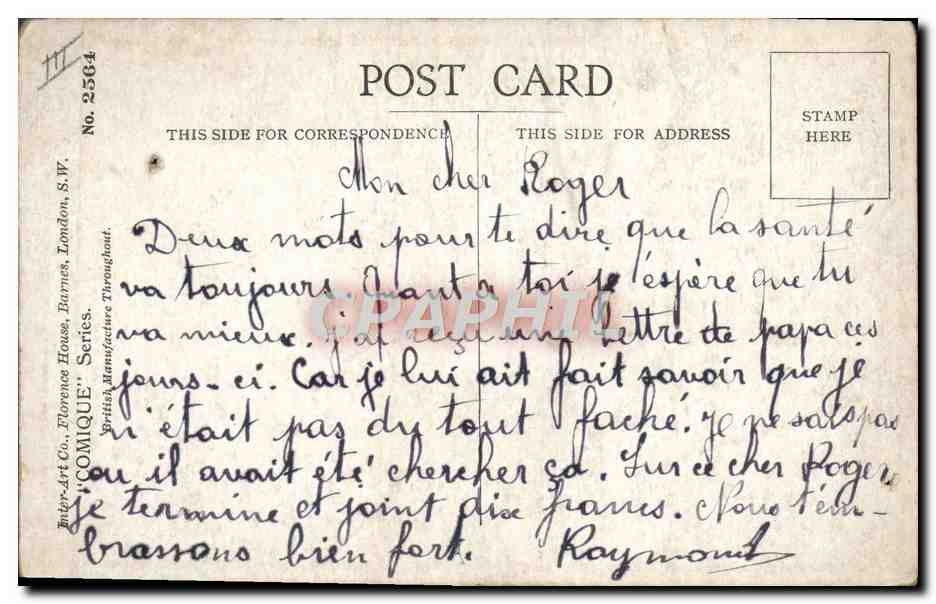 III
POST CARD
THIS SIDE FOR CORRESPONDENCE
THIS SIDE FOR ADDRESS
STAMP
HERE
Inter-Art Co., Florence House, Barnes, London, S.W.
"COMIQUE" Series.
No. 2564
British Manufacture Throughout.
Mon cher Roger
Deux mots pour te dire que la santé
va toujours. Quant a toi je éspère que tu
va mieux. j'ai reçu une lettre de papa ces
jours-ci. Car je lui ait fait savoir que je
n'était pas du tout faché. Je ne sais pas
ou il avait été chercher ça. Sur ce cher Roger,
je termine et joint dix francs. Nous t'em-
brassons bien fort. Raymond
CPAPHIL